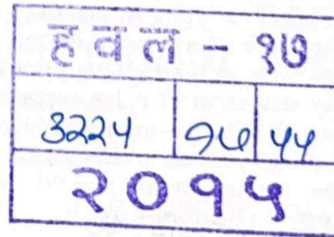 हवल - १७
३२२५ ५५
२०१५